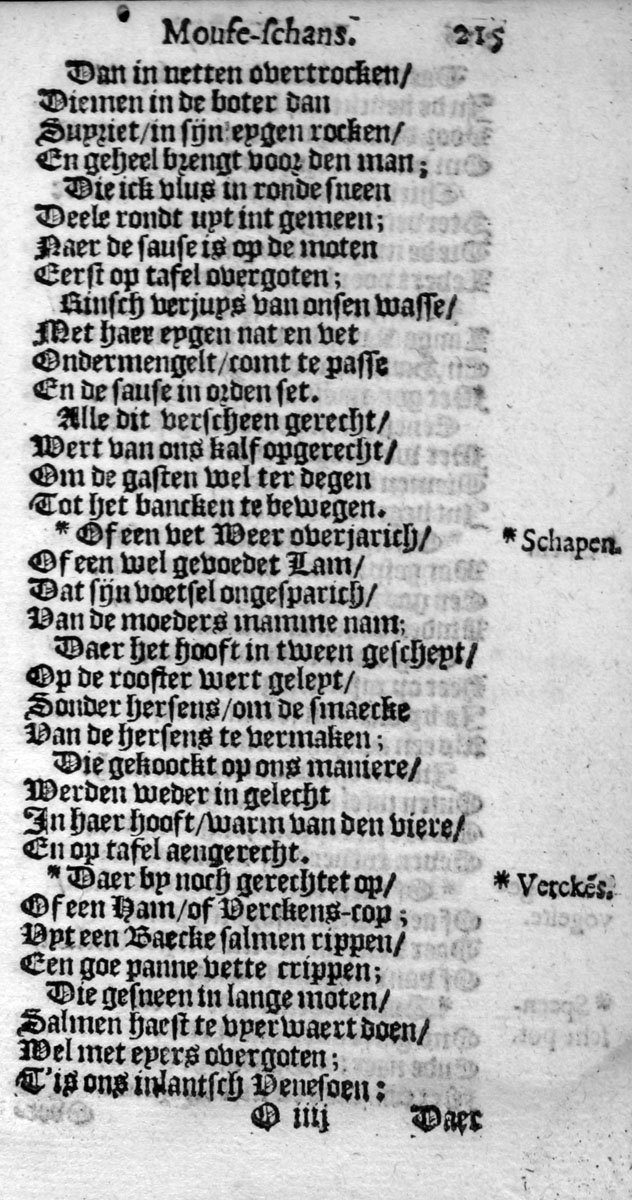 Mouse-schans. 215
Dan in netten overtrocken/
Diemen in de boter dan
Suyriet/in sijn eygen rocken/
En geheel brengt voor den man;
Die ick vlus in ronde sneen
Deele rondt uyt int gemeen;
Naer de sause is op de moten
Eerst op tafel overgoten;
Rinsch verjuys van onsen wasse/
Met haer eygen nat en vet
Ondermengelt/comt te passe
En de sause in orden set.
Alle dit verscheen gerecht/
Wert van ons kalf opgerecht/
Om de gasten wel ter degen
Tot het bancken te bewegen.
* Of een vet Weer overjarich/ * Schapen.
Of een wel gevoedet Lam/
Dat sijn voetsel ongesparich/
Van de moeders mamme nam;
Daer het hooft in tween gescheyt/
Op de rooster wert geleyt/
Sonder hersens/om de smaecke
Van de hersens te vermaken;
Die gekoockt op ons maniere/
Werden weder in gelecht
In haer hooft/warm van den viere/
En op tafel aengerecht.
* Daer by noch gerechtet op/ * Verckēs.
Of een Ham/of Verckens-cop;
Uyt een Baecke salmen rippen/
Een goe panne vette crippen;
Die gesneen in lange moten/
Salmen haest te vyerwaert doen/
Wel met eyers overgoten;
T'is ons inlantsch Venesoen:
O iiij Daer